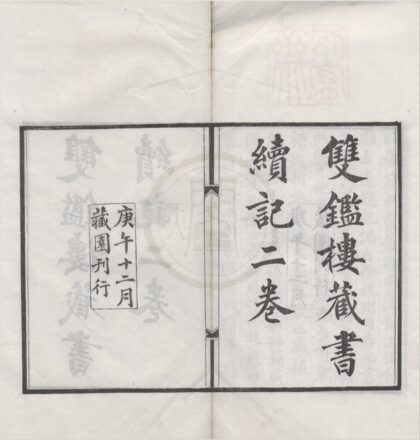 雙鑑樓藏書
續記二卷
庚午十二月
藏園刊行